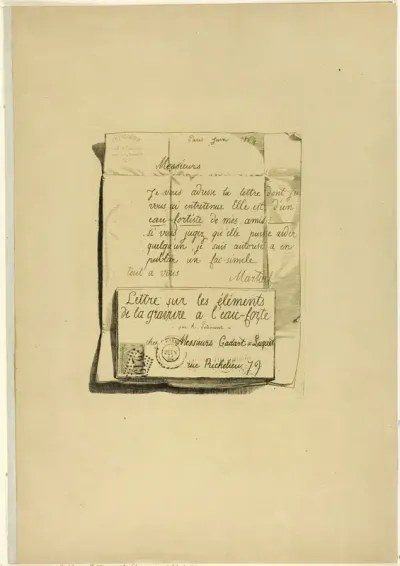 Paris Juin 1864
Messieurs
Je vous adresse la lettre dont je
vous ai entretenus Elle est d'un
eau-fortiste de mes amis
si vous jugez qu'elle puisse aider
quelqu'un je suis autorisé a en
publier un fac-simile
tout a vous
Martial
Lettre sur les éléments
de la gravure a l'eau-forte
par A.
chez Messieurs Cadart & Luquet
rue Richelieu, 79